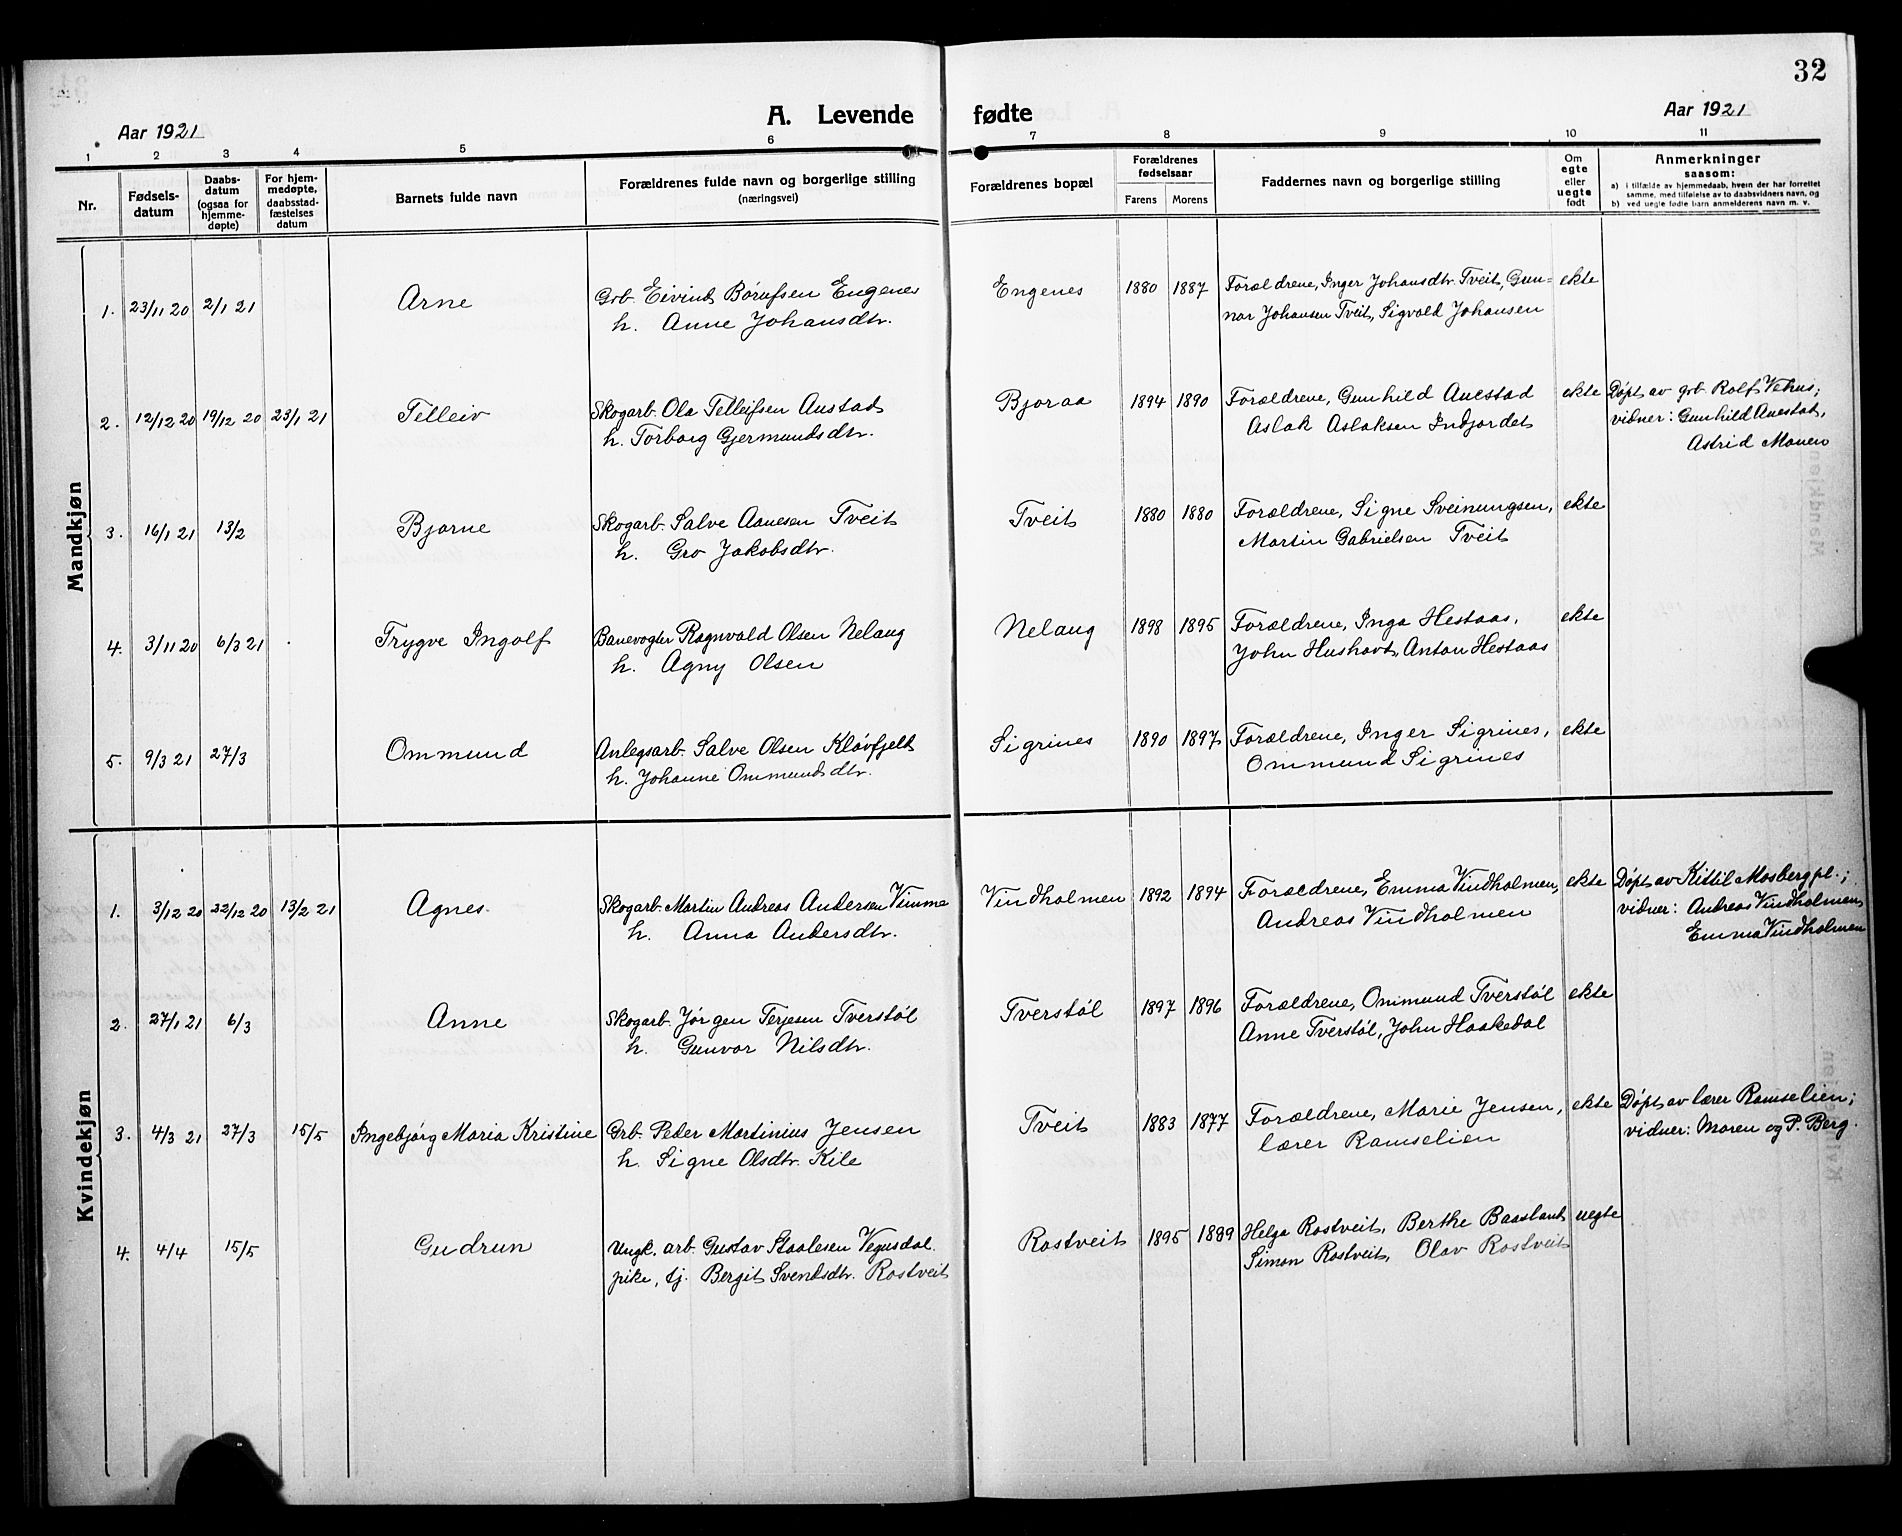 32
Aar 1921
A. Levende fødte
Aar 1921
1 2 3 4 5 6 7 8 9 10 11
Nr.
Fødsels-
datum
Daabs-
datum
(ogsaa for
hjemme-
døpte)
For hjem-
medøpte,
daabsstad-
fæstelses
datum
Barnets fulde navn
Forældrenes fulde navn og borgerlige stilling
(næringsvei)
Forældrenes bopæl
Forældrenes
fødselsaar
Farens Morens
Faddernes navn og borgerlige stilling
Om
egte
eller
uegte
født
Anmerkninger
saasom:
a) i tilfælde av hjemmedaab, hvem der har forrettet
samme, med tilføielse av to daabsvidners navn, og
b) ved uegte fødte barn anmelderens navn m. v.
Mandkjøn
1. 23/11 20 2/1 21 Arne Grb. Eivind Børufsen Engenes Engenes 1880 1887 Forældrene, Inger Johansdtr. Tveit, Gun- ekte
h. Anne Johansdtr. nar Johansen Tveit, Sigvald Johansen
2. 12/12 20 19/12 20 23/1 21 Telleiv Skogarb. Ola Telleifsen Austad Bjoraa 1894 1890 Forældrene, Gunhild Auestad ekte Døpt av grb. Rolf Vehus;
h. Torborg Gjermundsdtr. Aslak Aslaksen Indjordet vidner: Gunhild Auestad,
Astrid Monen
3. 16/1 21 13/2 Bjarne Skogarb. Salve Aanesen Tveit Tveit 1880 1880 Forældrene, Signe Sveinungsen, ekte
h. Gro Jakobsdtr. Martin Gabrielsen Tveit
4. 3/11 20 6/3 21 Trygve Ingolf Banevogter Ragnvald Olsen Nelaug Nelaug 1898 1895 Forældrene, Inga Hestaas, ekte
h. Agny Olsen John Hushovt, Anton Hestaas
5. 9/3 21 27/3 Ommund Anlegsarb. Salve Olsen Kløvfjelt Sigrines 1890 1897 Forældrene, Inger Sigrines, ekte
h. Johanne Ommundsdtr. Ommund Sigrines
Kvindekjøn
1. 3/12 20 22/12 20 13/2 21 Agnes Skogarb. Martin Andreas Andersen Vimme Vindholmen 1892 1894 Forældrene, Emma Vindholmen, ekte Døpt av Kittil Mosberg pl.;
h. Anna Andersdtr. Andreas Vindholmen vidner: Andreas Vindholmen,
Emma Vindholmen
2. 27/1 21 6/3 Anne Skogarb. Jørgen Terjesen Tverstøl Tverstøl 1897 1896 Forældrene, Ommund Tverstøl ekte
h. Gunvor Nilsdtr. Anne Tverstøl, John Haakedal
3. 4/3 21 27/3 15/5 Ingebjørg Maria Kristine Grb. Peder Martinius Jensen Tveit 1883 1877 Forældrene, Marie Jensen, ekte Døpt av lærer Ramselien;
h. Signe Olsdtr. Kile lærer Ramselien vidner: Moren og P. Berg.
4. 4/4 15/5 Gudrun Ungk. arb. Gustav Staalesen Vegusdal Rostveit 1895 1899 Helga Rostveit, Berthe Baasland uegte
pike, tj. Bergit Svendsdtr. Rostveit Simon Rostveit, Olav Rostveit